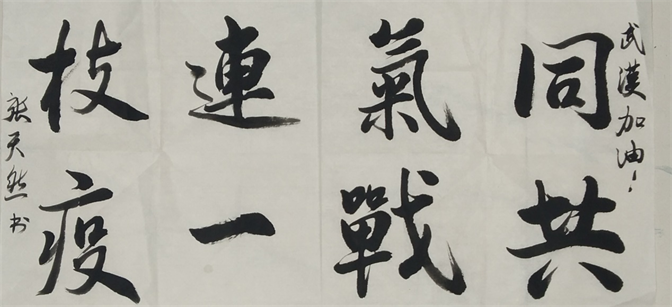 武漢加油!
同氣連枝
共戰一疫
天然书